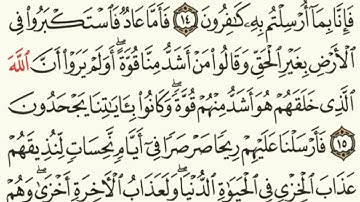 فَإِنَّا بِمَآ أُرْسِلْتُم بِهِۦ كَـٰفِرُونَ ١٤ فَأَمَّا عَادٌ فَٱسْتَكْبَرُوا۟ فِى
ٱلْأَرْضِ بِغَيْرِ ٱلْحَقِّ وَقَالُوا۟ مَنْ أَشَدُّ مِنَّا قُوَّةً ۖ أَوَلَمْ يَرَوْا۟ أَنَّ ٱللَّهَ
ٱلَّذِى خَلَقَهُمْ هُوَ أَشَدُّ مِنْهُمْ قُوَّةً ۖ وَكَانُوا۟ بِـَٔايَـٰتِنَا يَجْحَدُونَ
١٥ فَأَرْسَلْنَا عَلَيْهِمْ رِيحًا صَرْصَرًا فِىٓ أَيَّامٍ نَّحِسَاتٍ لِّنُذِيقَهُمْ
عَذَابَ ٱلْخِزْىِ فِى ٱلْحَيَوٰةِ ٱلدُّنْيَا ۖ وَلَعَذَابُ ٱلْـَٔاخِرَةِ أَخْزَىٰ ۖ وَهُمْ